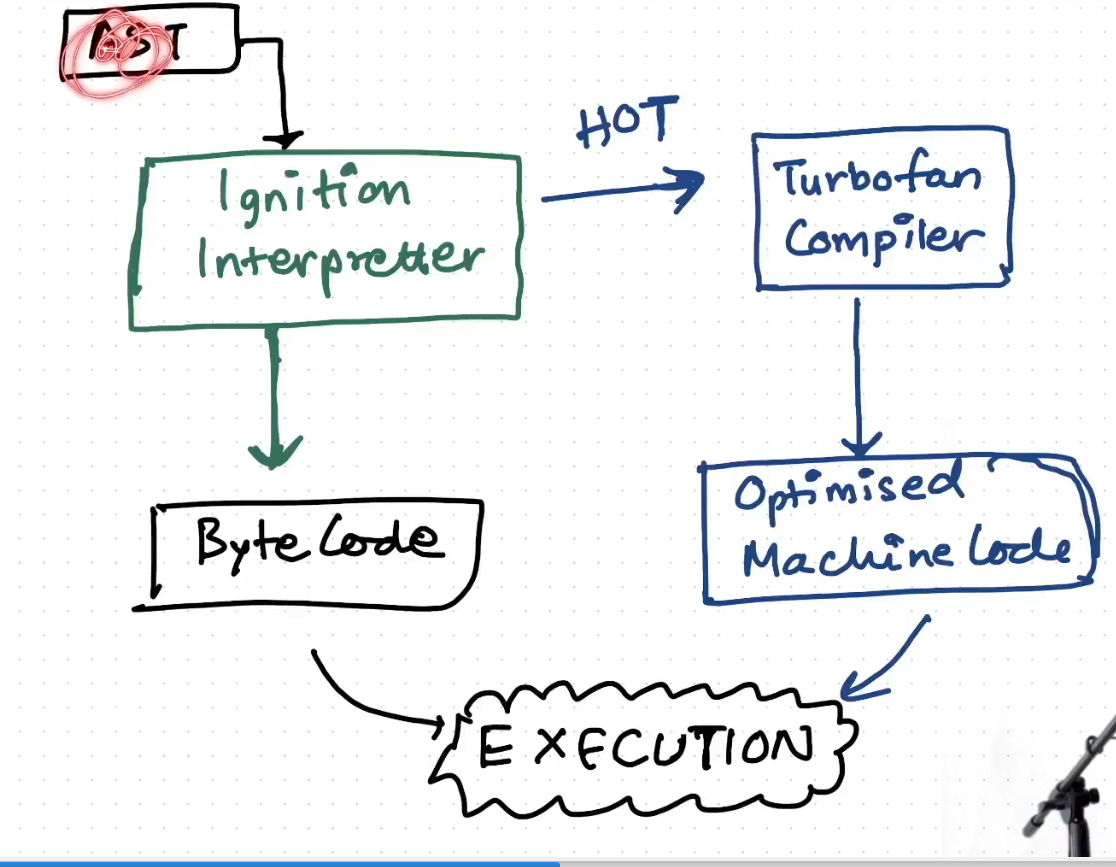 AST
Ignition
Interpretter
HOT
Turbofan
Compiler
Byte Code
Optimised
Machine Code
EXECUTION